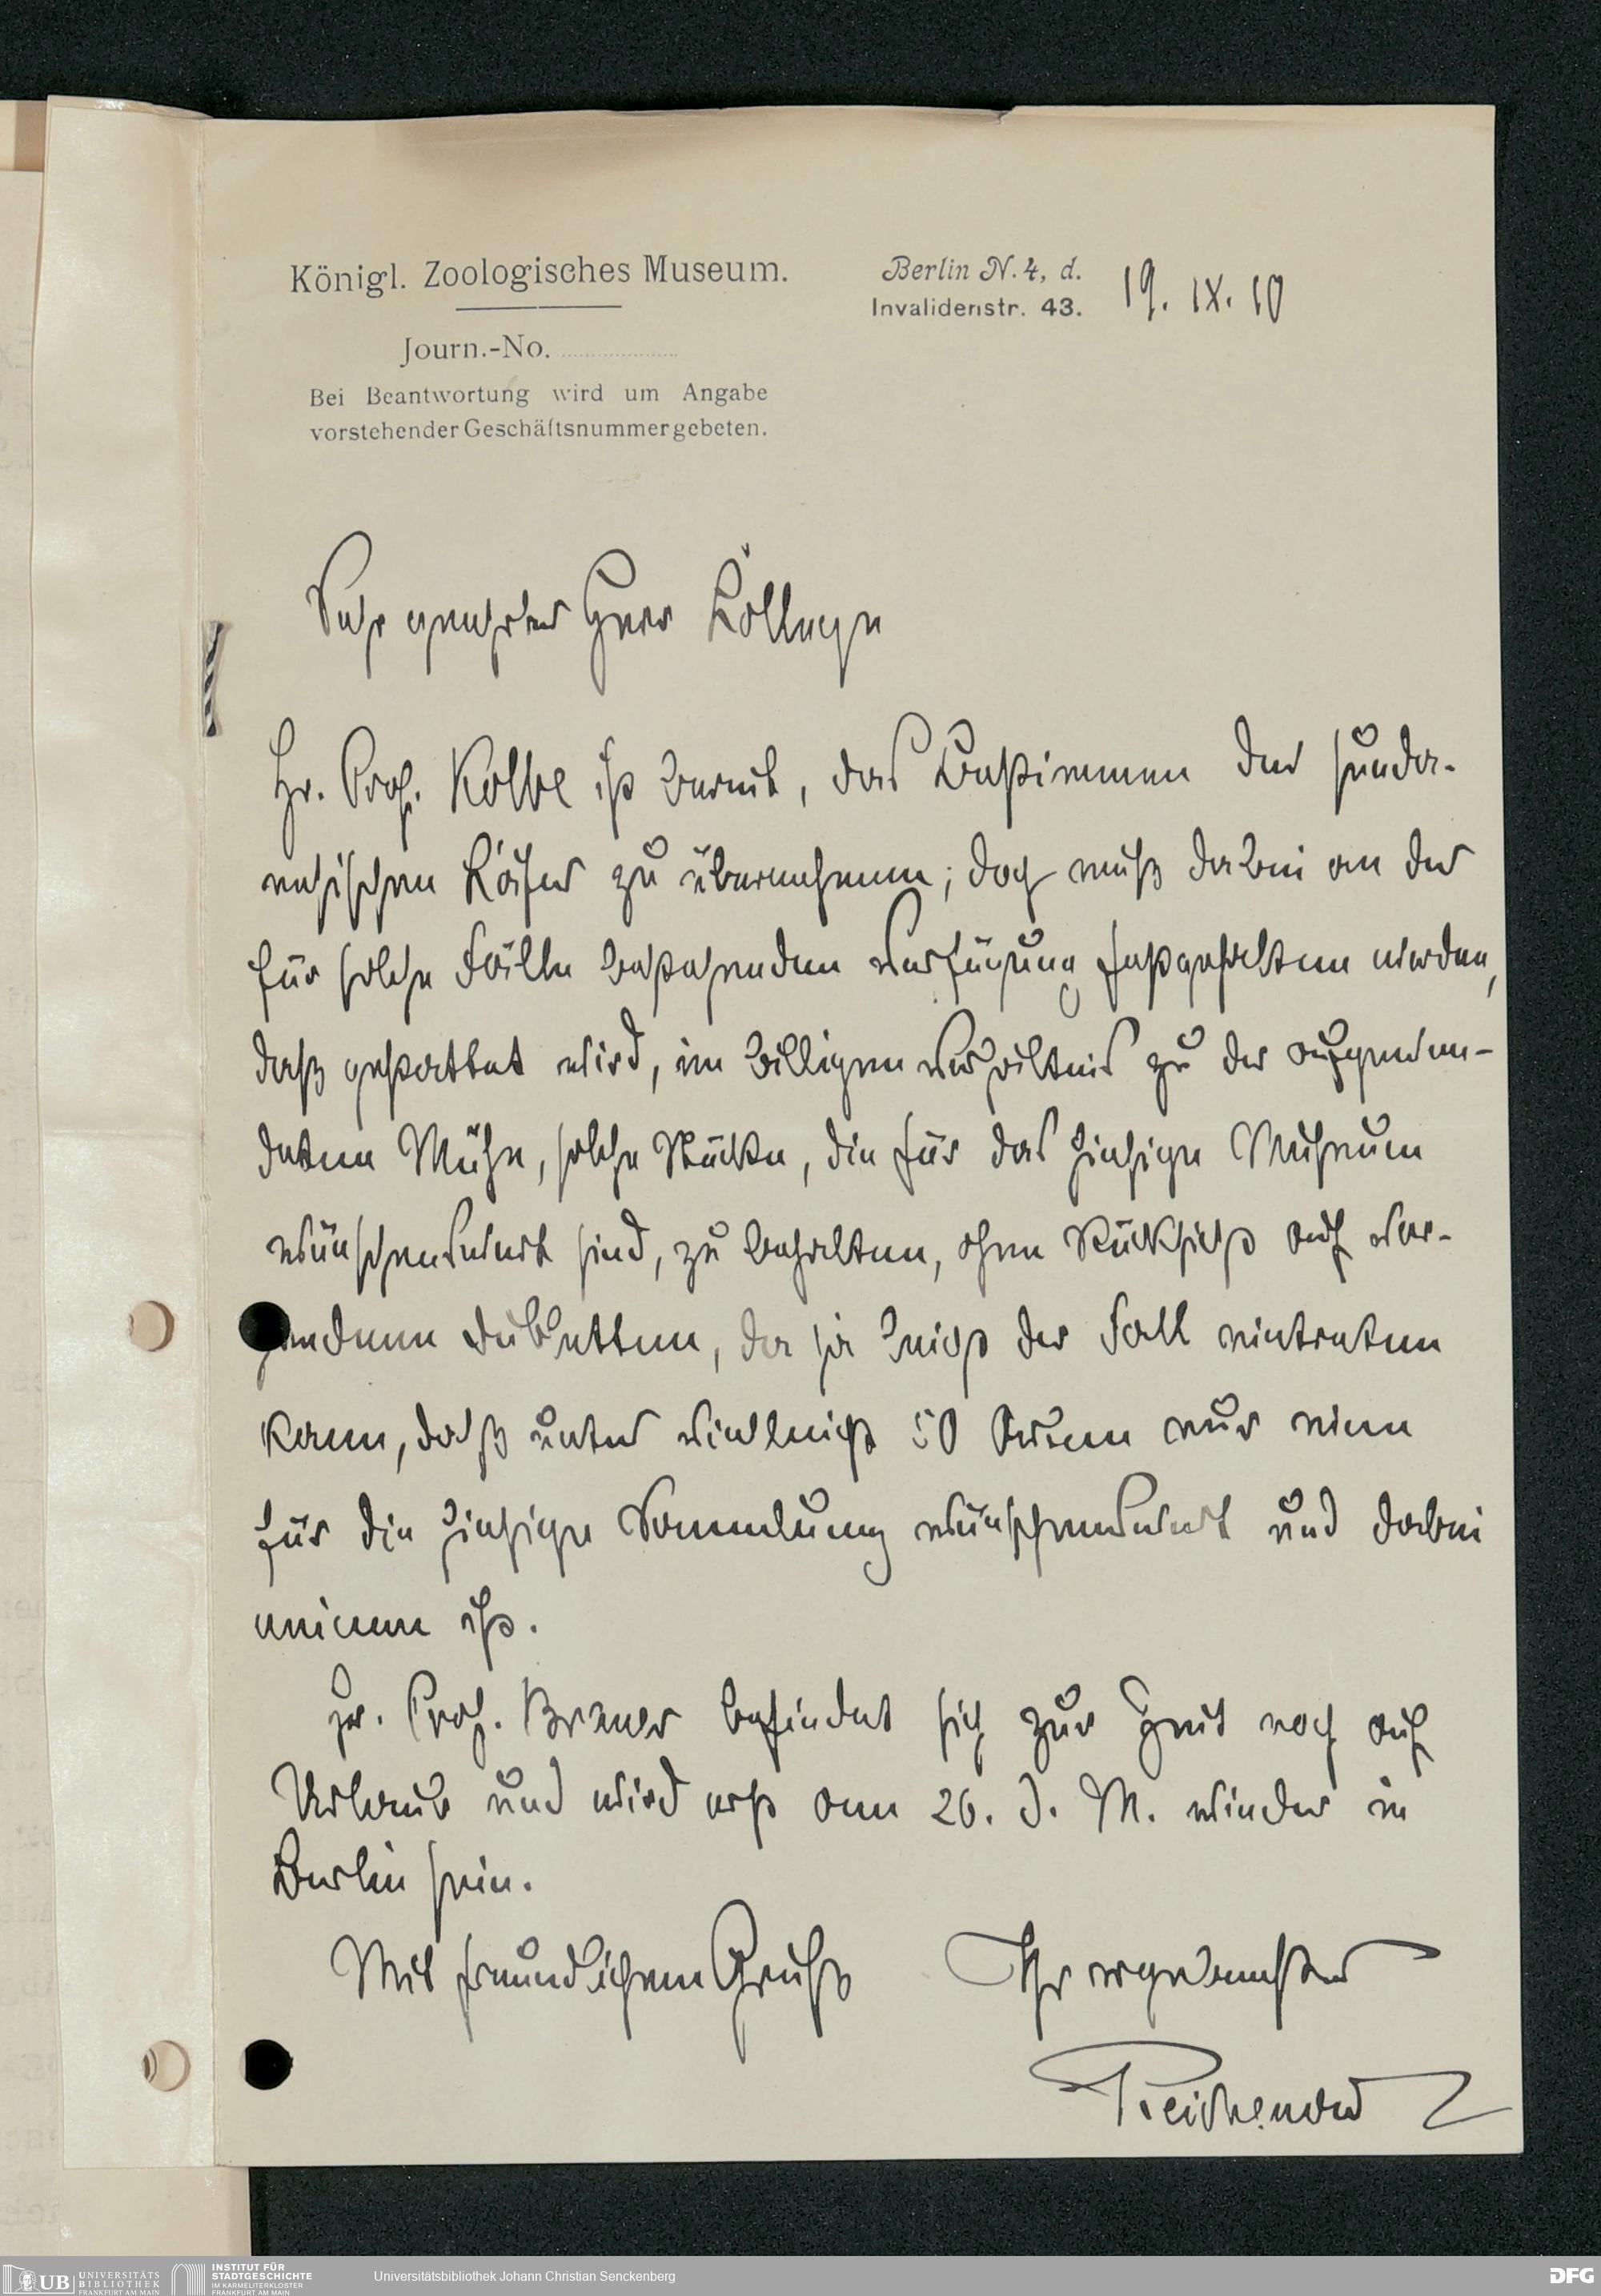 Königl. Zoologisches Museum.
Journ.-No.
Bei Beantwortung wird um Angabe
vorstehender Geschäftsnummer gebeten.
Berlin N. 4, d.
Invalidenstr. 43.
19. IX. 10
Sehr geehrter Herr Kollege
Hr. Prof. Kolbe ist bereit, das Bestimmen der sunda-
nesischen Käfer zu übernehmen; doch muß dabei an der
für solche Fälle bestehenden Verfügung festgehalten werden,
daß gestattet wird, im billigen Verhältnis zu der aufgewen-
deten Mühe, solche Stücke, die für das hiesige Museum
wünschenswert sind, zu behalten, ohne Rücksicht auf vor-
handenen Dubletten, da ja leicht der Fall eintreten
kann, daß unter vielleicht 50 Arten nur eine
für die hiesige Sammlung wünschenswert und dabei
unicum ist.
Hr. Prof. Brauer befindet sich zur Zeit noch auf
Urlaub und wird erst am 26. d. M. wieder in
Berlin sein.
Mit freundlichem Gruße Ihr ergebenster
Reichenow
UB UNIVERSITÄTS
BIBLIOTHEK
FRANKFURT AM MAIN
INSTITUT FÜR
STADTGESCHICHTE
IM KARMELITERKLOSTER
FRANKFURT AM MAIN
Universitätsbibliothek Johann Christian Senckenberg
DFG